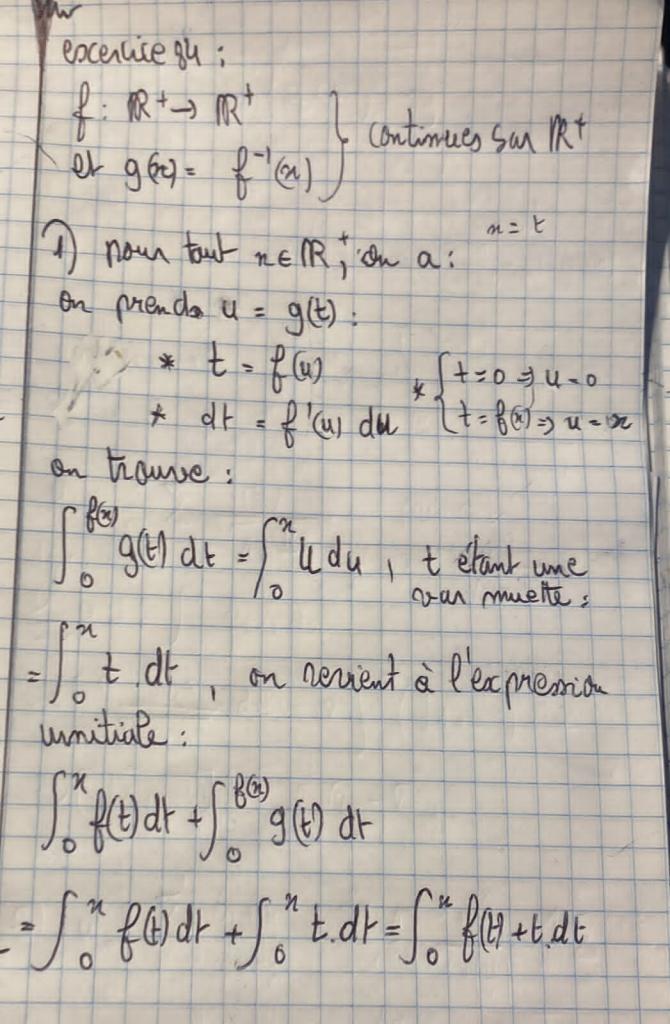 excercice 84 :
f : ℝ⁺ → ℝ⁺
et g(x) = f⁻¹(x) } continues sur ℝ⁺
x = t
1) pour tout x ∈ ℝ⁺, on a :
on prends u = g(t) :
* t = f(u) * { t = 0 ⇒ u = 0
* dt = f'(u) du { t = f(x) ⇒ u = x
on trouve :
∫₀^f(x) g(t) dt = ∫₀^x u du , t étant une
var muette :
= ∫₀^x t . dt , on revient à l'expression
initiale :
∫₀^x f(t) dt + ∫₀^f(x) g(t) dt
= ∫₀^x f(t) dt + ∫₀^x t . dt = ∫₀^x f(t) + t . dt